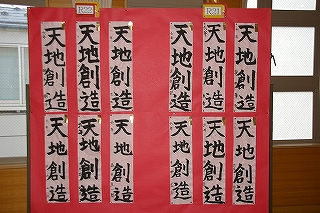 R22
R21
天地創造
天地創造
天地創造
天地創造
天地創造
天地創造
天地創造
天地創造
天地創造
天地創造
天地創造
天地創造